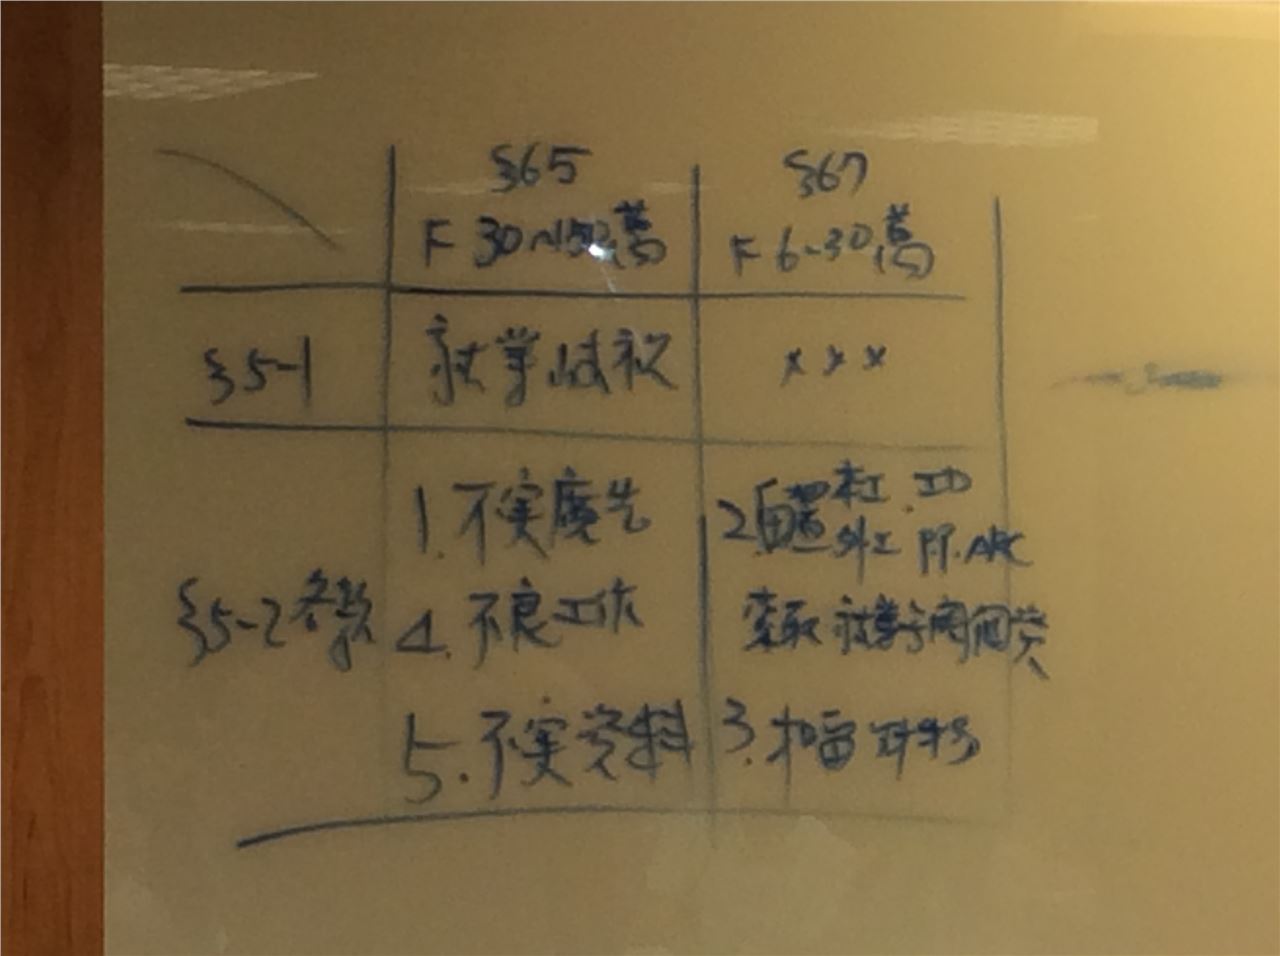 §65 §67
F 30~150萬 F 6~30萬
§5-1 就業歧視 x x x
1. 不实廣告 2. 留置 本工.ID
外工 PP. ARC
§5-2各款 4. 不良工作 索取
5. 不实資料 3. 扣留財物